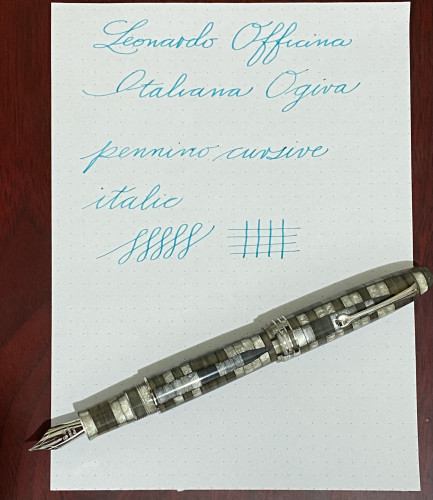 Leonardo Officina
Italiana Ogiva
pennino cursive
italic